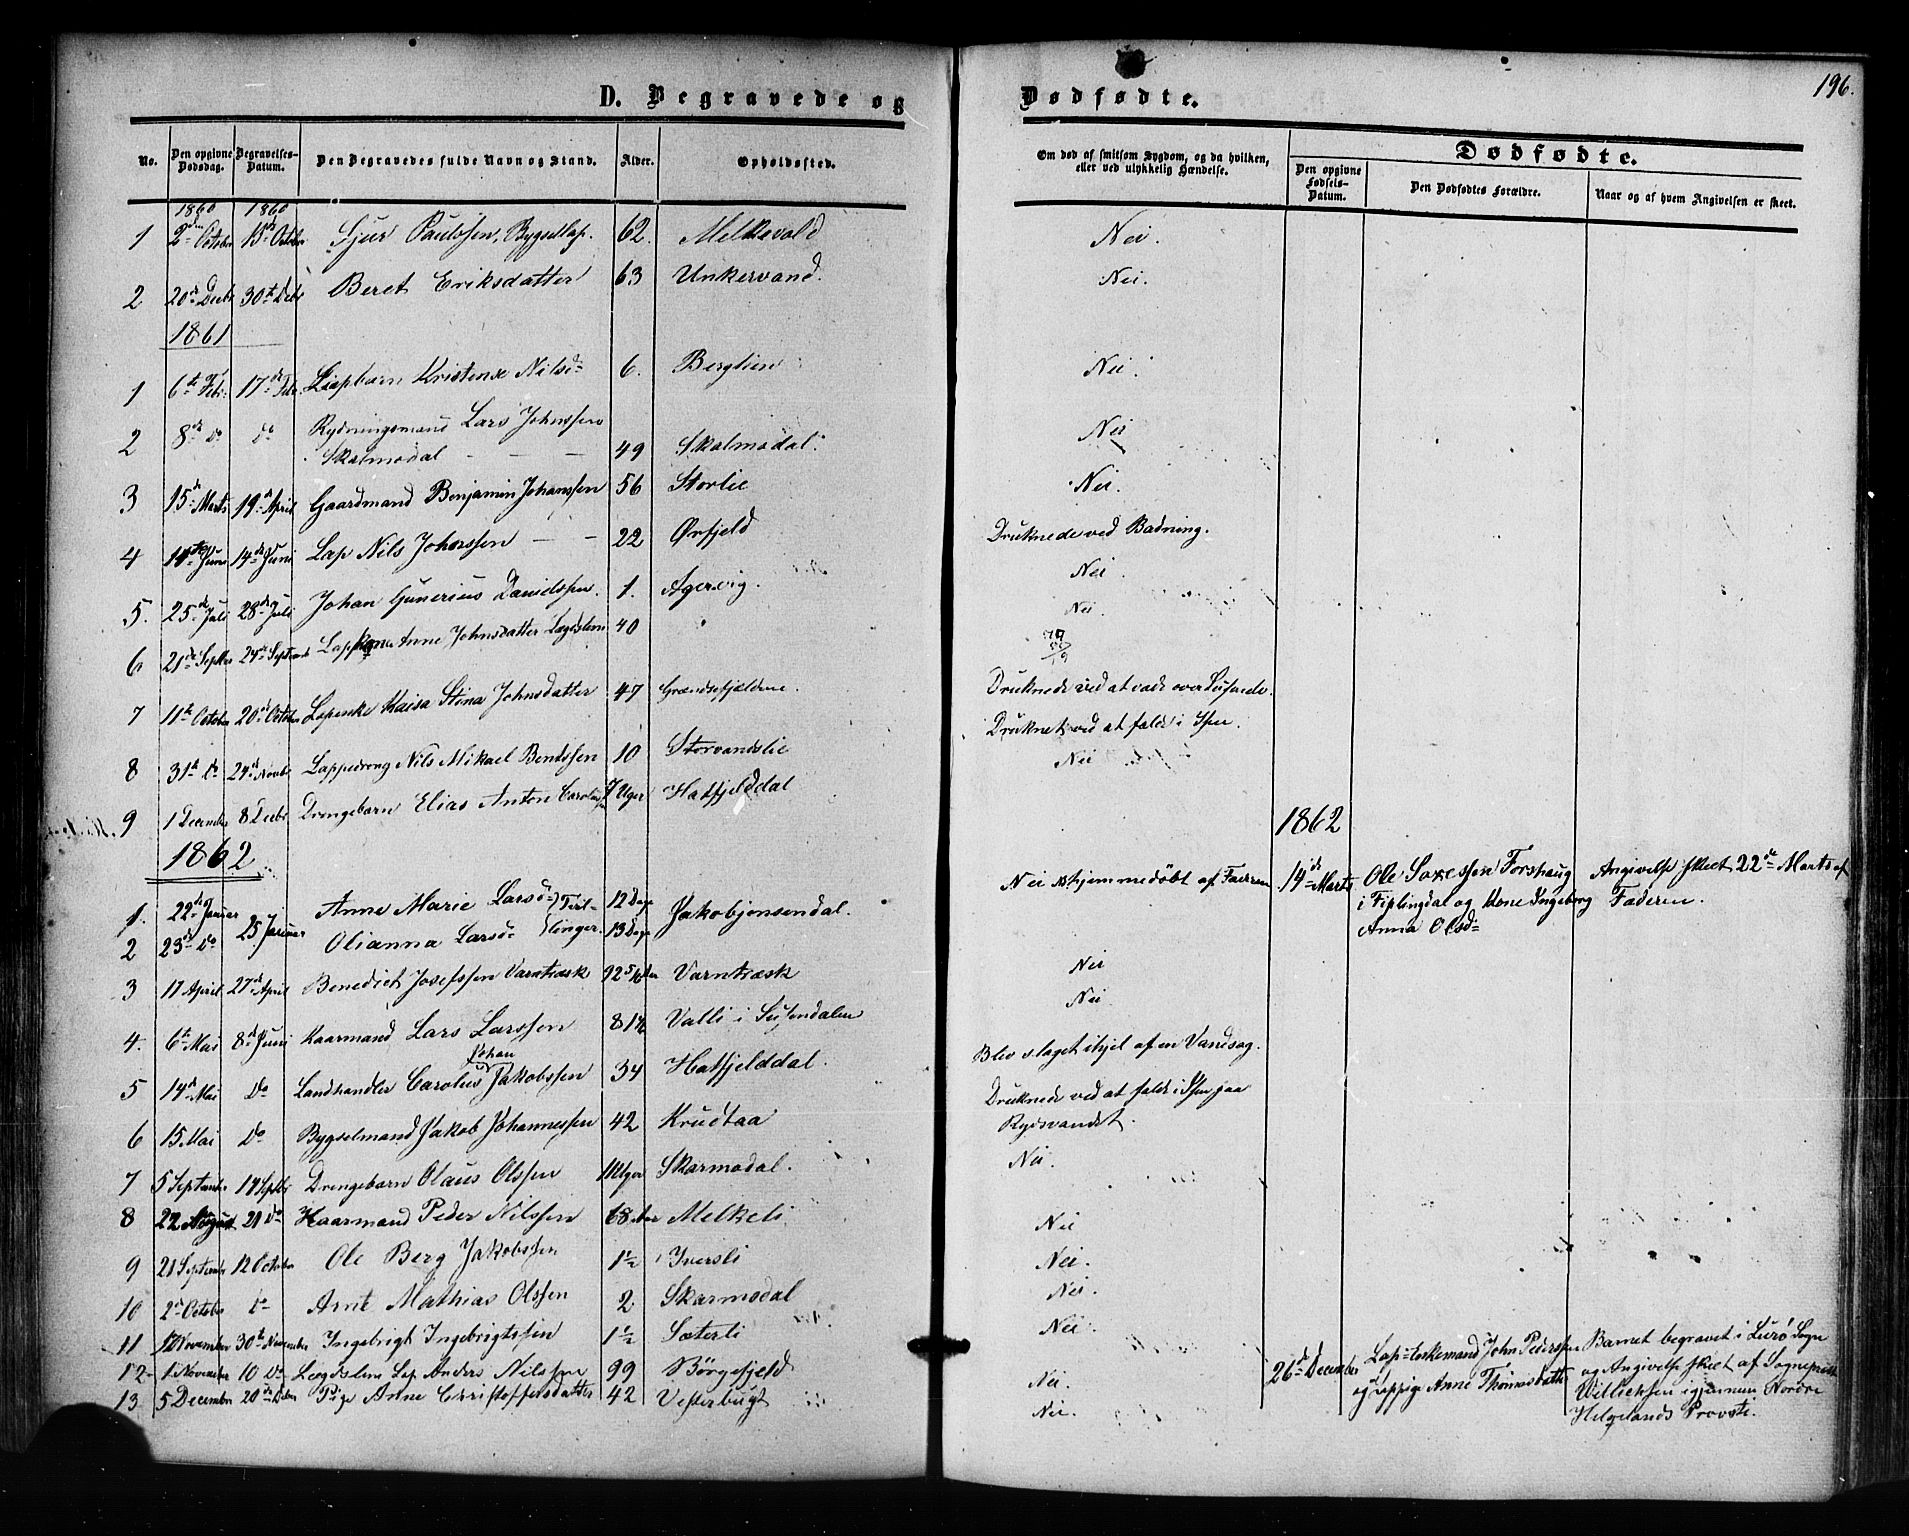 196.
D. Begravede og Dødfødte.
No. Den opgivne Dødsdag. Begravelses-Datum. Den Begravedes fulde Navn og Stand. Alder. Opholdssted. Om død af smitsom Sygdom, og da hvilken, eller ved ulykkelig Hændelse.
Dødfødte.
Den opgivne Fødsels-Datum. Den Dødfødtes Forældre. Naar og af hvem Angivelsen er skeet.
1860 1860
1 2den October 15d October Sjur Paulssen, Bygsellap. 62. Melkevold Nei.
2 20de Decbr 30te Debr Beret Eriksdatter 63 Unkervand. Nei.
1861
1 6te Febr. 17de Febr. Lapbarn Kristense Nilsd. 6. Berglien Nei.
2 8de Do Do Rydningsmand Lars Johnssen
Skalmodal - - - 49 Skalmodal. Nei
3 15de Marts 19de April Gaardmand Benjamin Johanssen 56 Storlie Nei.
4 Juni 14de Juni Lap Nils Johnssen - - 22 Ørfjeld Druknede ved Badning.
5. 25de Juli 28de Juli Johan Gunerius Danielssen. 1. Agervig. Nei.
6 21de Septbr 24de Septemb Lapkone Anne Johnsdatter Lægdslem 40 Nei.
7 11te October 20de October Lapenke Kaisa Stina Johnsdatter 47 Grændsefjeldene. Druknede ved at vade over Susnede.
8 31te Do 24de Novbr Lappedreng Nils Mikael Bendtssen 10 Storvandslie Druknet ved at falde i Isen.
9 1 December 8 Decbr Drengebarn Elias Anton Carolus 7 Uger Hatfjelddal Nei
1862
1862
1. 22de Januar 25 Januar Anne Marie Larsd. Tvil- 12 Dage Jakobjonsendal. Nei hjemmedöbt af Faderen
2 23de Do Olianna Larsd. linger. 13 Dage
14de Marts Ole Saxessen Forshaug
i Fiplingdal og Kone Ingeborg
Anna Olsd.
Angivelse skeet 22de Marts af
Faderen.
3 17 April 27de April Benedict Josefssen Varntræsk 92 Varntræsk Nei
4. 6te Mai 8de Juni Kaarmand Lars Larssen 81 Valli i Susendalen Nei
5 14de Mai Do Landhandler Carolus Johan Jakobssen 34 Hatfjelddal. Blev slaget ihjel af en Vandsag.
6 15 Mai Do Bygselmand Jakob Johannessen 42 Krudtaa Druknede ved at falde i Isen paa
Rydsvandet.
7 5 September 14 Septbr Drengebarn Olaus Olssen Uger Skarmodal. Nei
8 22 August 21 Do Kaarmand Peder Nilssen 68 Aar Melkeli Nei
9 21 September 12 October Ole Berg Jakobssen 1½ Iversli Nei.
10 2de October Do Arnt Mathias Olssen 2 Skarmodal Nei.
11 November 30te November Ingebrigt Ingebrigtssen 1½ Sæterli Nei
12 1 November 10 Do Lægdslem Lap Anders Nilssen 99 Börgefjeld Nei.
13 5 December 20de Decbr Pige Anne Christoffersdatter 42 Vesterbugt Nei.
26de December Lap-Enkemand John Pederssen
og Lappige Anne Thomasdatter
Barnet begravet i Lurö Sogn
og Angivelse skeet af Sognepræst
Willichsen igjennem Nordre
Helgelands Provsti.